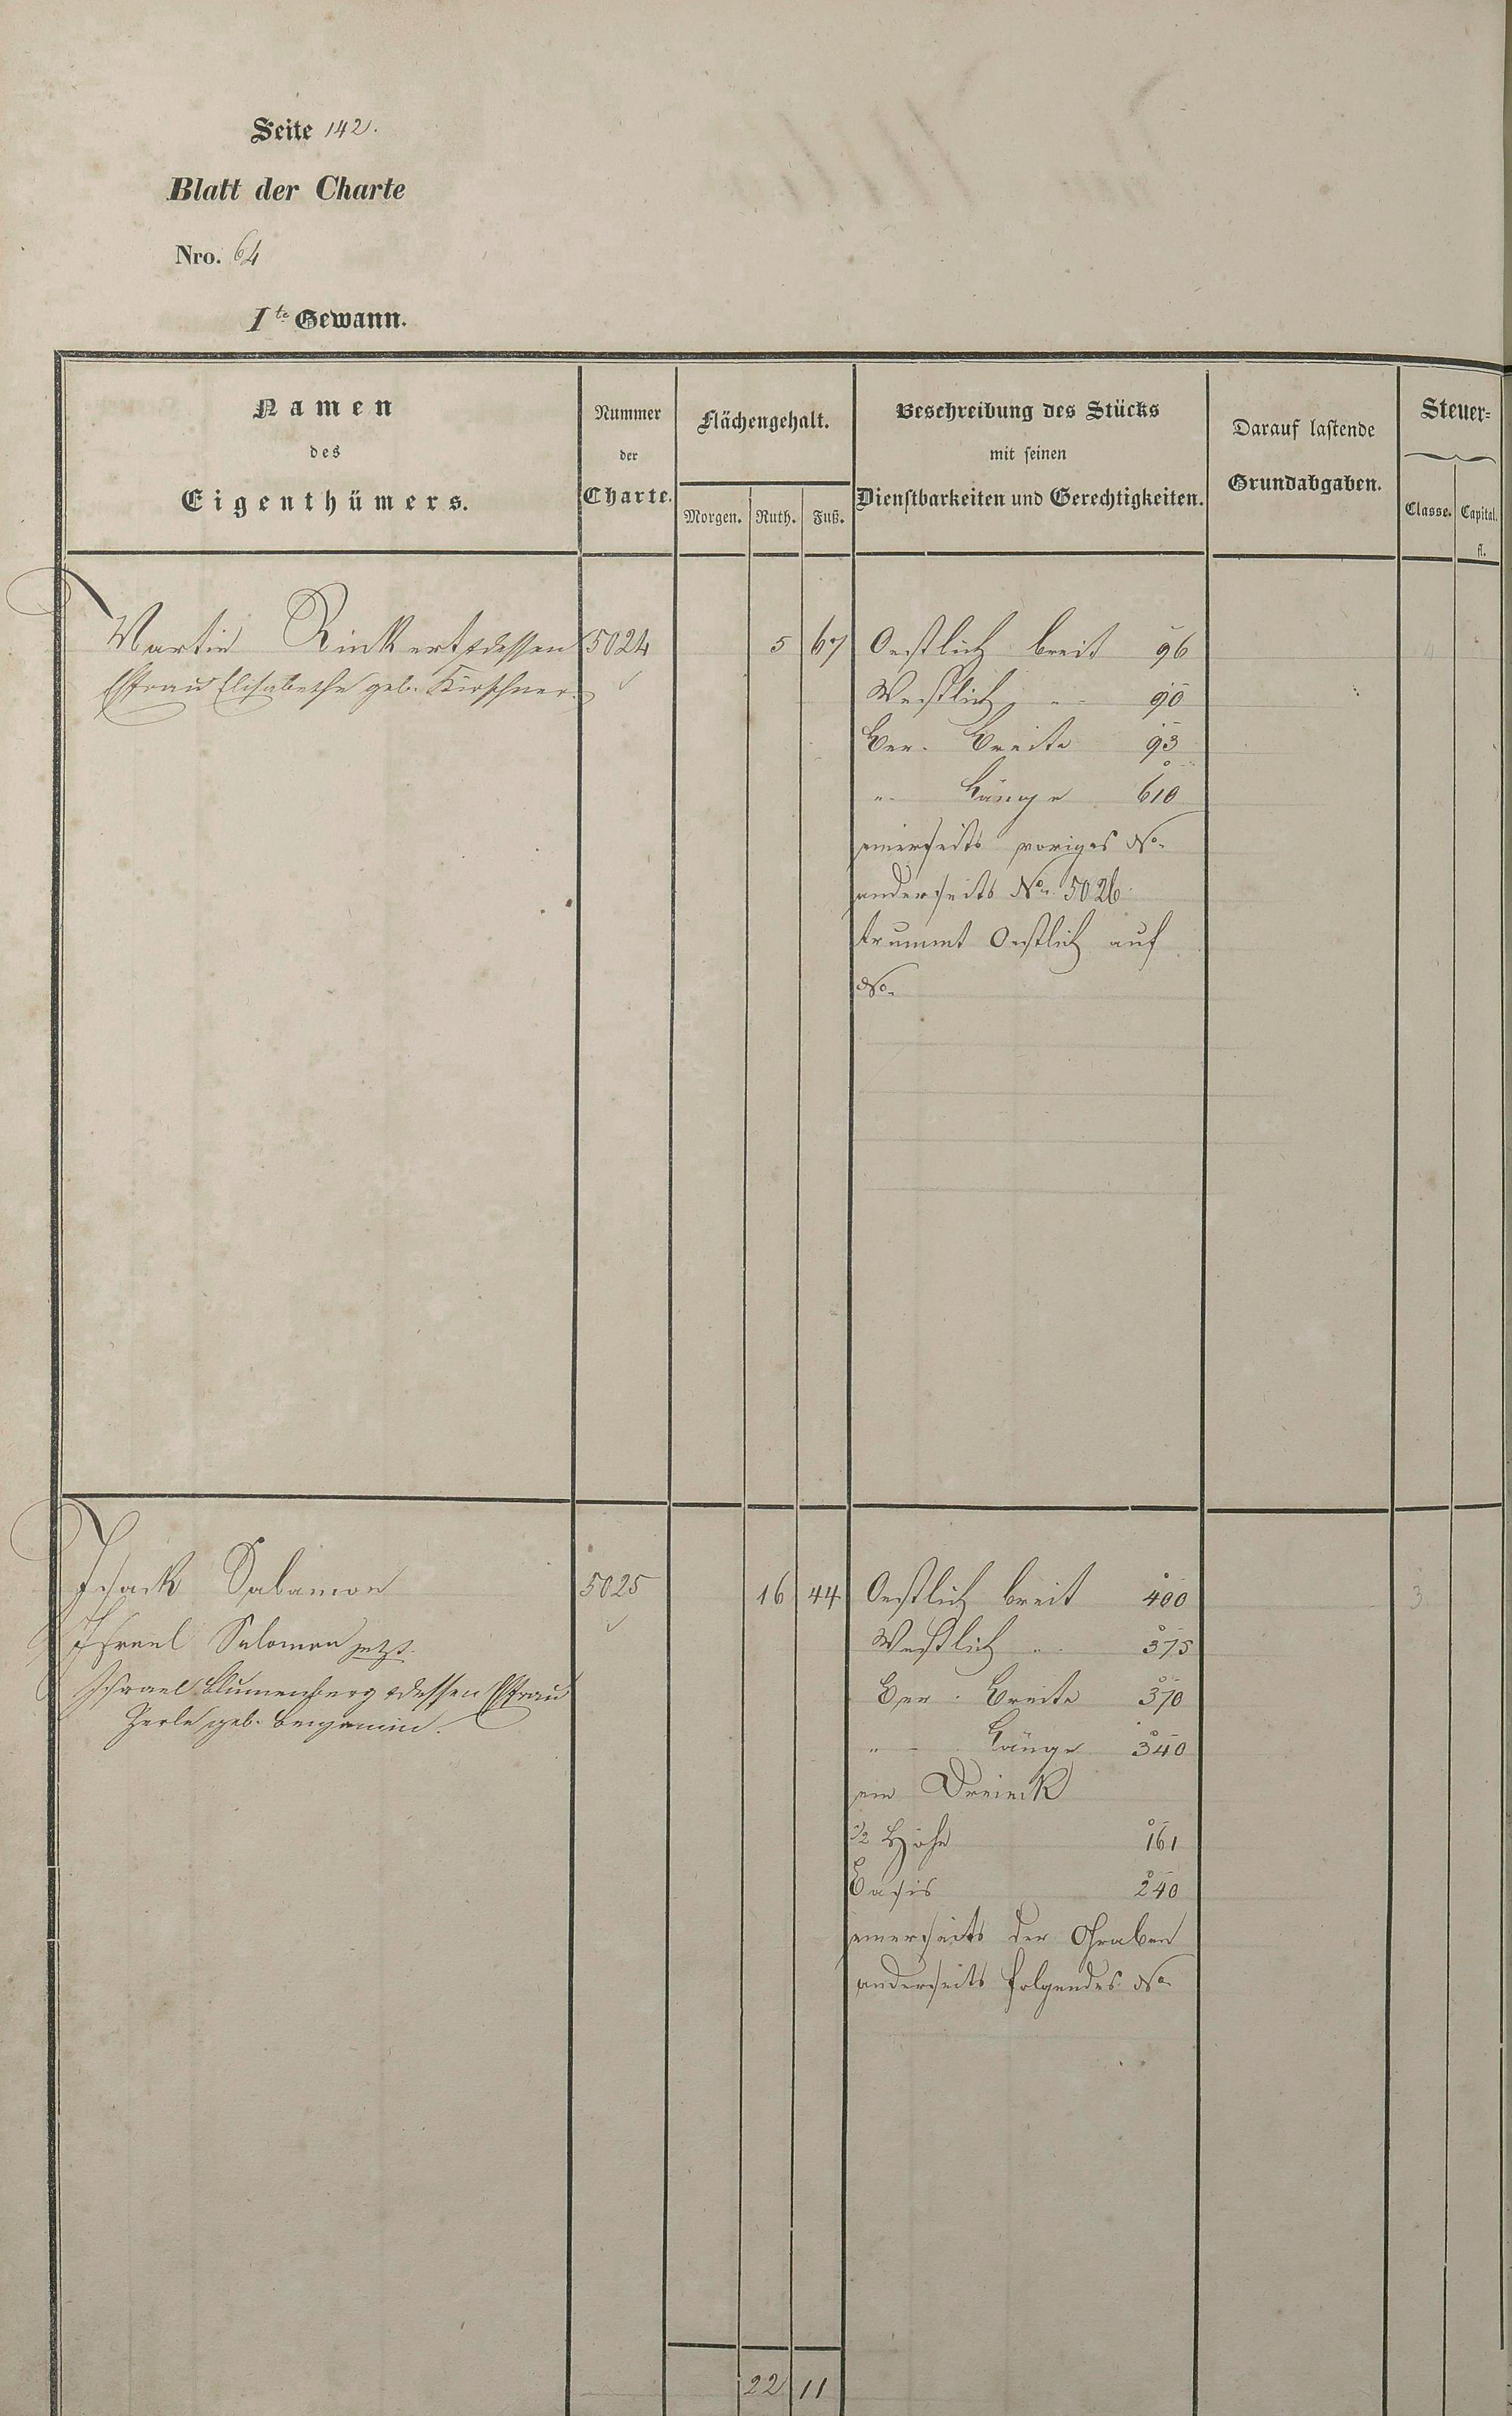 Seite 142.
Blatt der Charte
Nro. 64
Ite Gewann.
Namen
des
Eigenthümers.
Nummer
der
Charte.
Flächengehalt.
Morgen. Ruth. Fuß.
Beschreibung des Stücks
mit seinen
Dienstbarkeiten und Gerechtigkeiten.
Darauf lastende
Grundabgaben.
Steuer-
Classe. Capital.
fl.
Martin Rinkert & dessen 5024 5 67 Oestlich breit 96
Ehfrau Elisabetha geb. Kirschner.
Westlich " 90
Ber. Breite 93
" Länge 610
einerseits voriges No.
anderseits No. 5026
trummt Oestlich auf
No.
Isaak Salamon 5025 16 44 Oestlich breit 400 3
Israel Salomon jetzt
Westlich " 375
Israel Blumenberg & dessen Ehfrau
Ber. Breite 370
Zerle geb. Benjamin.
" Länge 340
ein Dreieck
1/2 Höhe 161
Basis 240
einerseits der Graben
anderseits folgendes No.
22 11